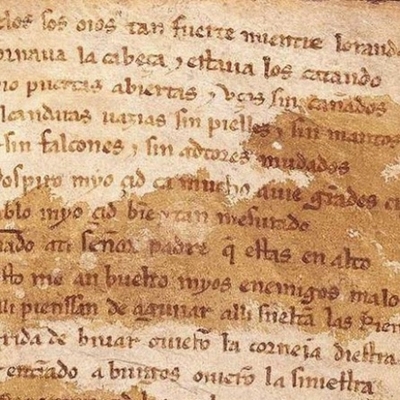 elos sos oios tan fuerte mientre lorando
ornaua la cabeça ⁊ estaua los catando
io puertas abiertas ⁊ vços sin cañados
lcandaras uazias sin pielles ⁊ sin mantos
sin falcones ⁊ sin adtores mudados
ospiro myo çid ca mucho auie grãdes cu
ablo myo çid biẽ ⁊ tan mesurado
rado ati señor padre q̃ estas en alto
sto me an buelto myos enemigos malo
lli pienssan de aguijar alli sueltã las rien
xida de biuar ouierõ la corneja diestra
entrãdo a burgos ouierõ la siniestra